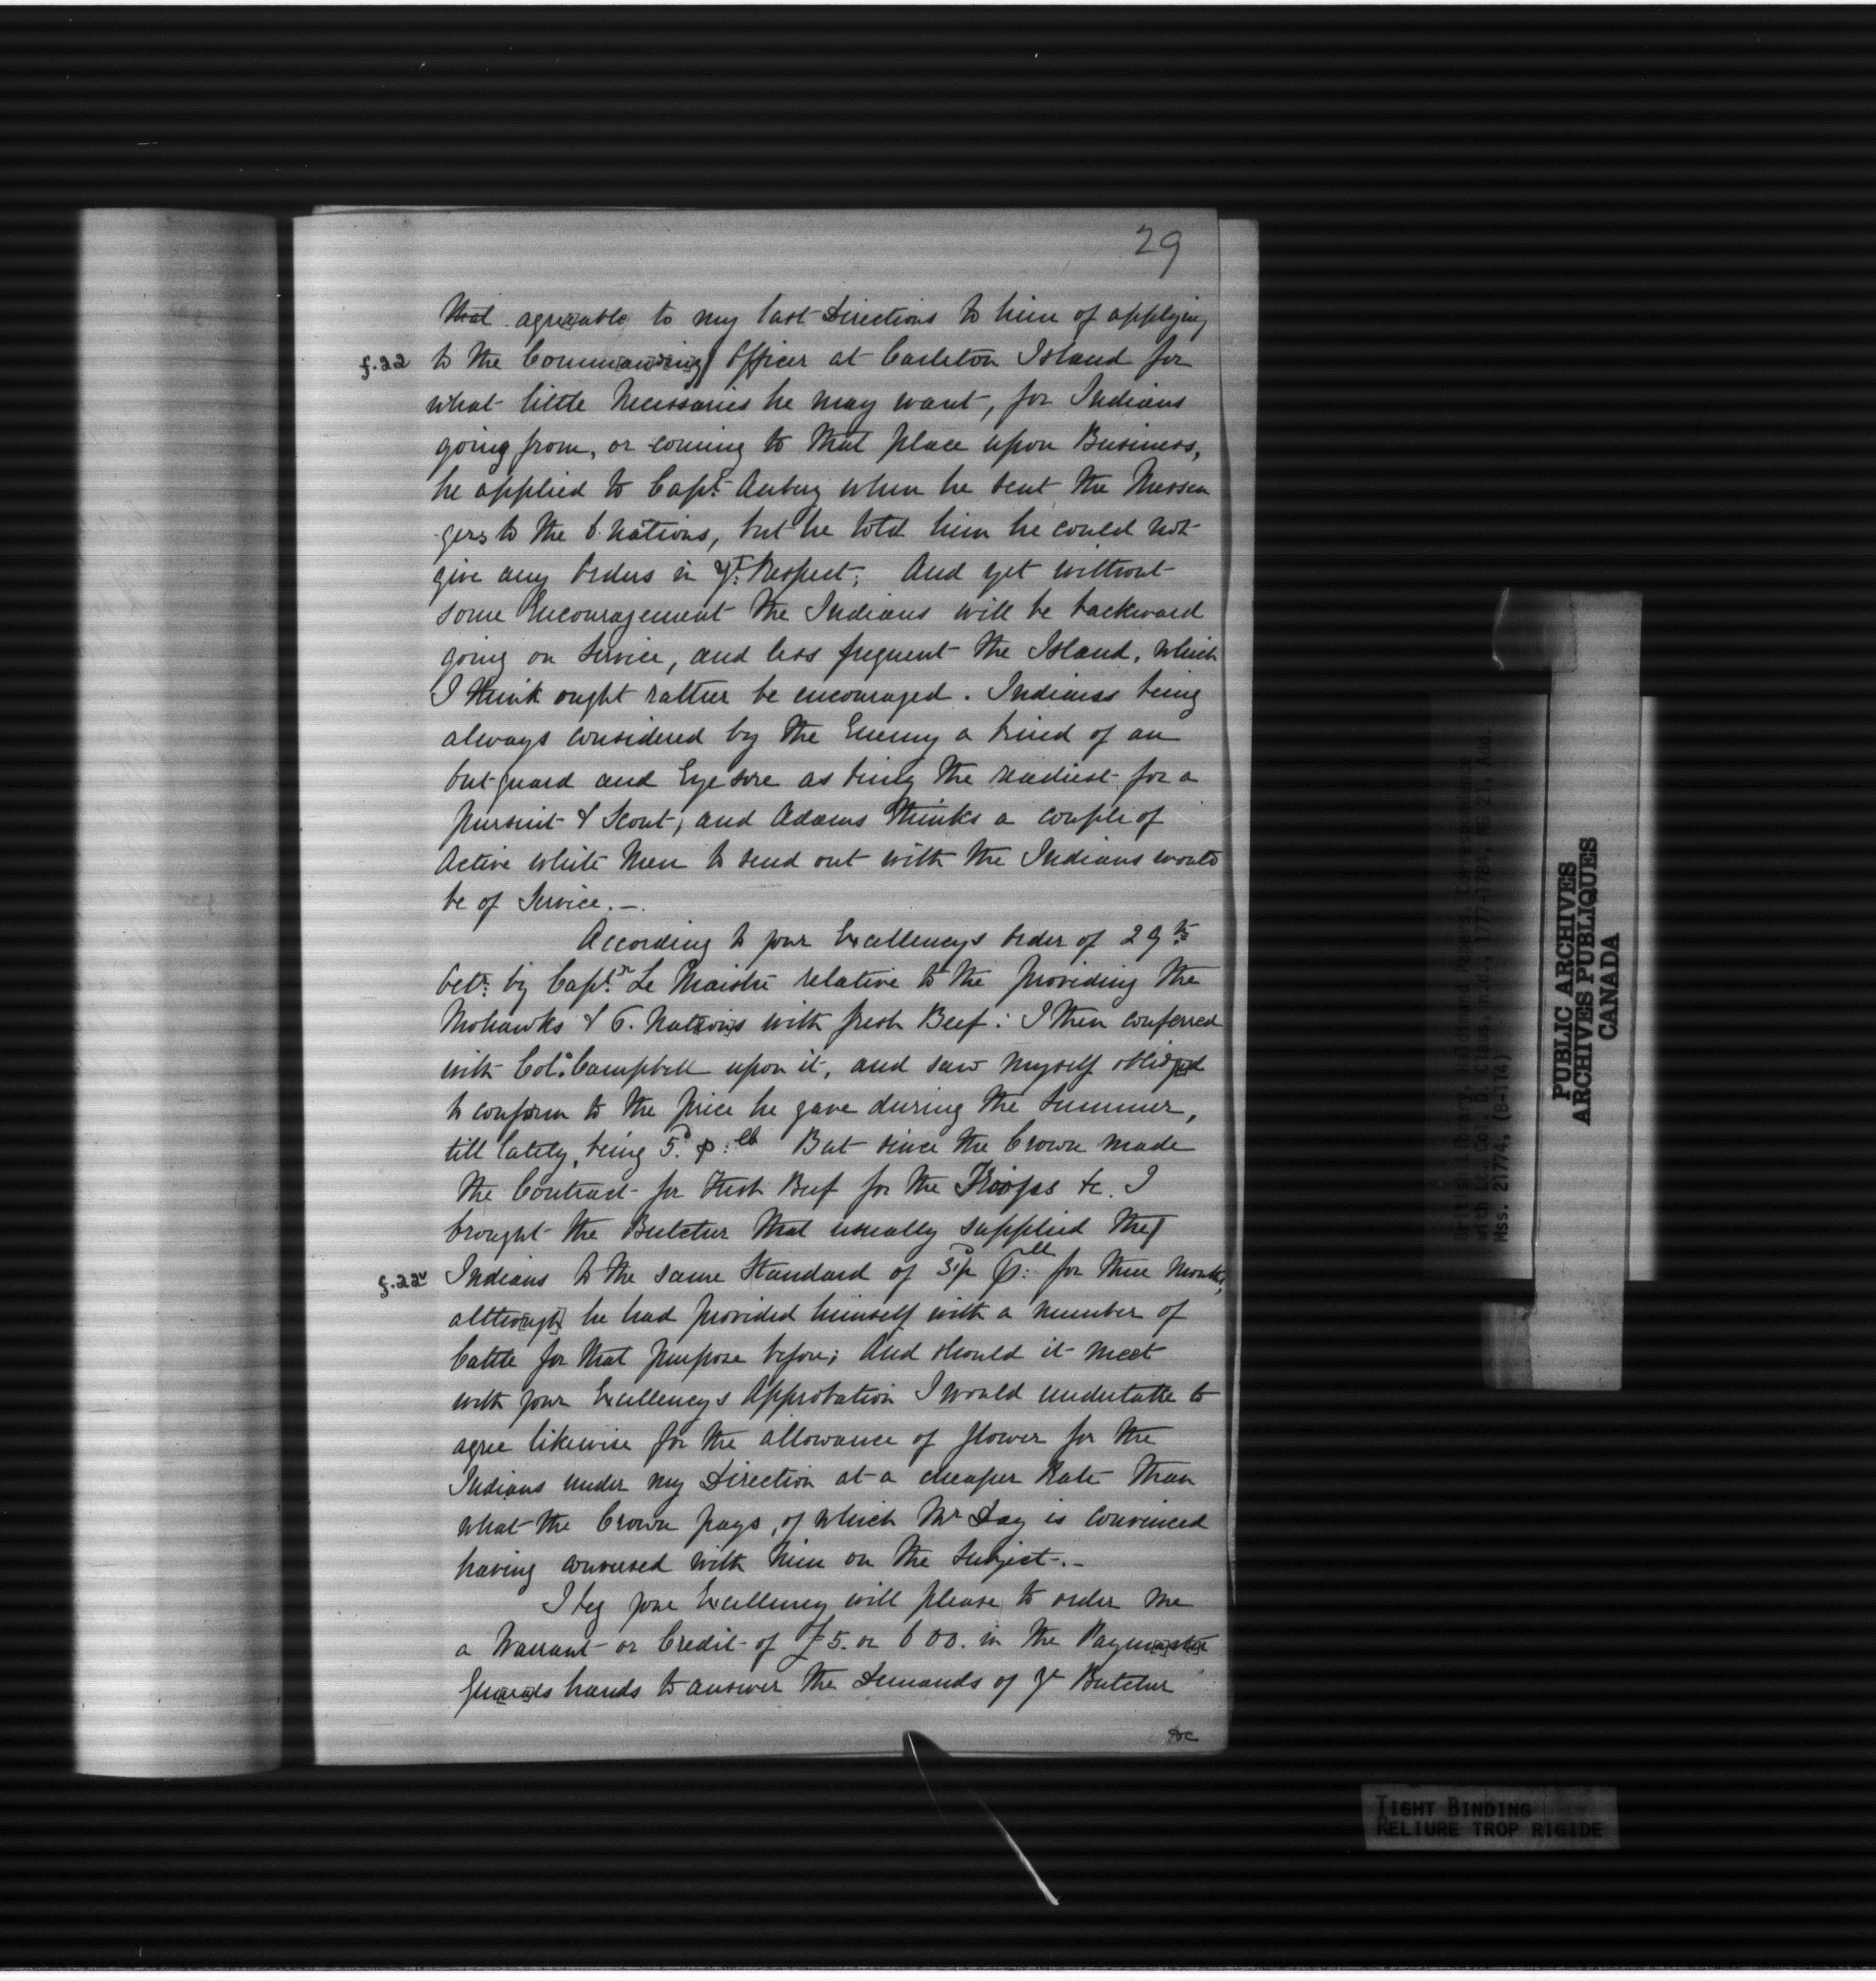 29
that agreeable to my last Directions to him of applying
f.22 to the Commanding Officer at Carleton Island for
what little Necessaries he may want, for Indians
going from, or coming to that place upon Business,
he applied to Capt. Aubrey when he sent the Messen
gers to the 6 Nations, but he told him he could not
give any Orders in yt. Respect; And yet without
some Encouragement the Indians will be backward
going on Service, and less frequent the Island, which
I think ought rather be encouraged. Indians being
always considered by the Enemy a kind of an
Out guard and Eye sore as being the readiest for a
pursuit & Scout; and Adams thinks a couple of
Active white Men to send out with the Indians would
be of Service.—.
According to your Excellencys Order of 29th
Octr. by Captn. Le Maistre relative to the providing the
Mohawks & 6. Nations with fresh Beef: I then conferred
with Colo. Campbell upon it, and saw myself obliged
to conform to the price he gave during the Summer,
till lately, being 5d. p. lb But since the Crown made
the Contract for Fresh Beef for the Troops &c. I
brought the Butcher that usually supplied the
f.22v Indians to the same Standard of for three Months,
although he had provided himself with a number of
Cattle for that purpose before; And should it meet
with your Excellencys Approbation I would undertake to
agree likewise for the allowance of flower for the
Indians under my Direction at a cheaper Rate than
what the Crown pays, of which Mr Day is convinced
having conversed with him on the Subject.—
I beg your Excellency will please to order me
a Warrant or Credit of £5. or 600. in the Paymaster
Generals hands to answer the Demands of ye Butcher
&c
British Library, Haldimand Papers, Correspondence
with Lt. Col. D. Claus, n.d., 1777-1784, MG 21, Add.
Mss. 21774, (B-114)
PUBLIC ARCHIVES
ARCHIVES PUBLIQUES
CANADA
TIGHT BINDING
RELIURE TROP RIGIDE